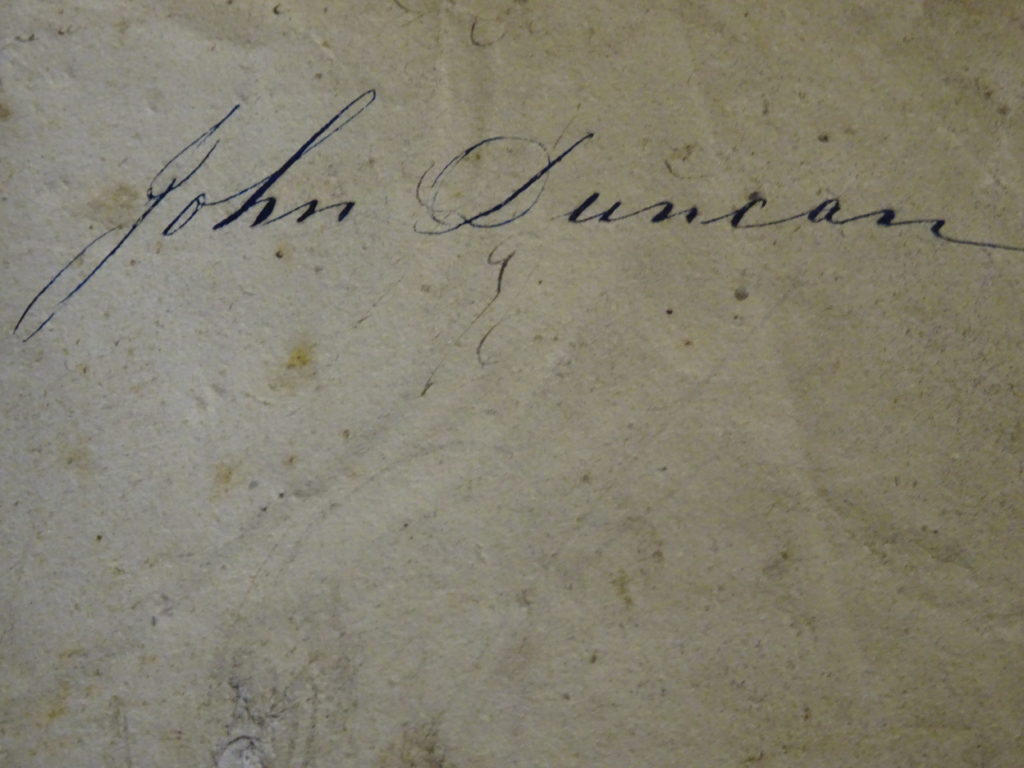 John Duncan